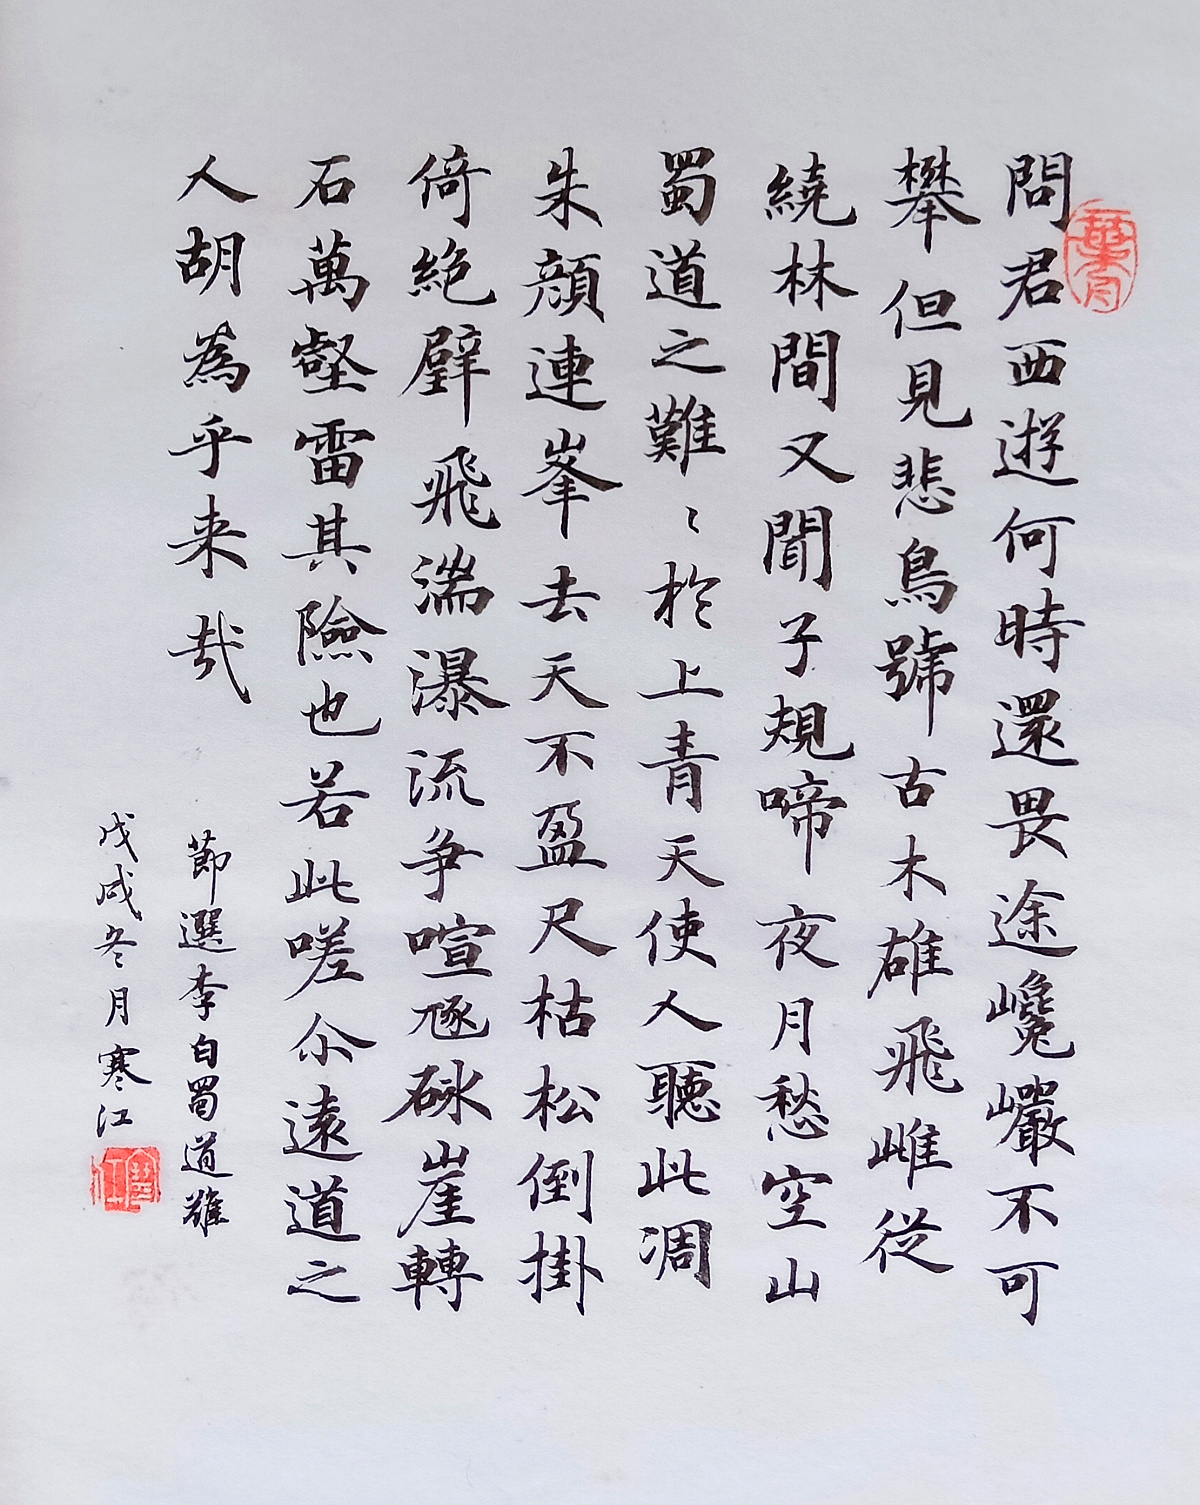 問君西遊何時還畏途巉巖不可
攀但見悲鳥號古木雄飛雌從
繞林間又聞子規啼夜月愁空山
蜀道之難〻於上青天使人聽此凋
朱顏連峯去天不盈尺枯松倒掛
倚絶壁飛湍瀑流争喧豗砯崖轉
石萬壑雷其險也若此嗟尒遠道之
人胡為乎来哉
節選李白蜀道難
戊戌冬月寒江